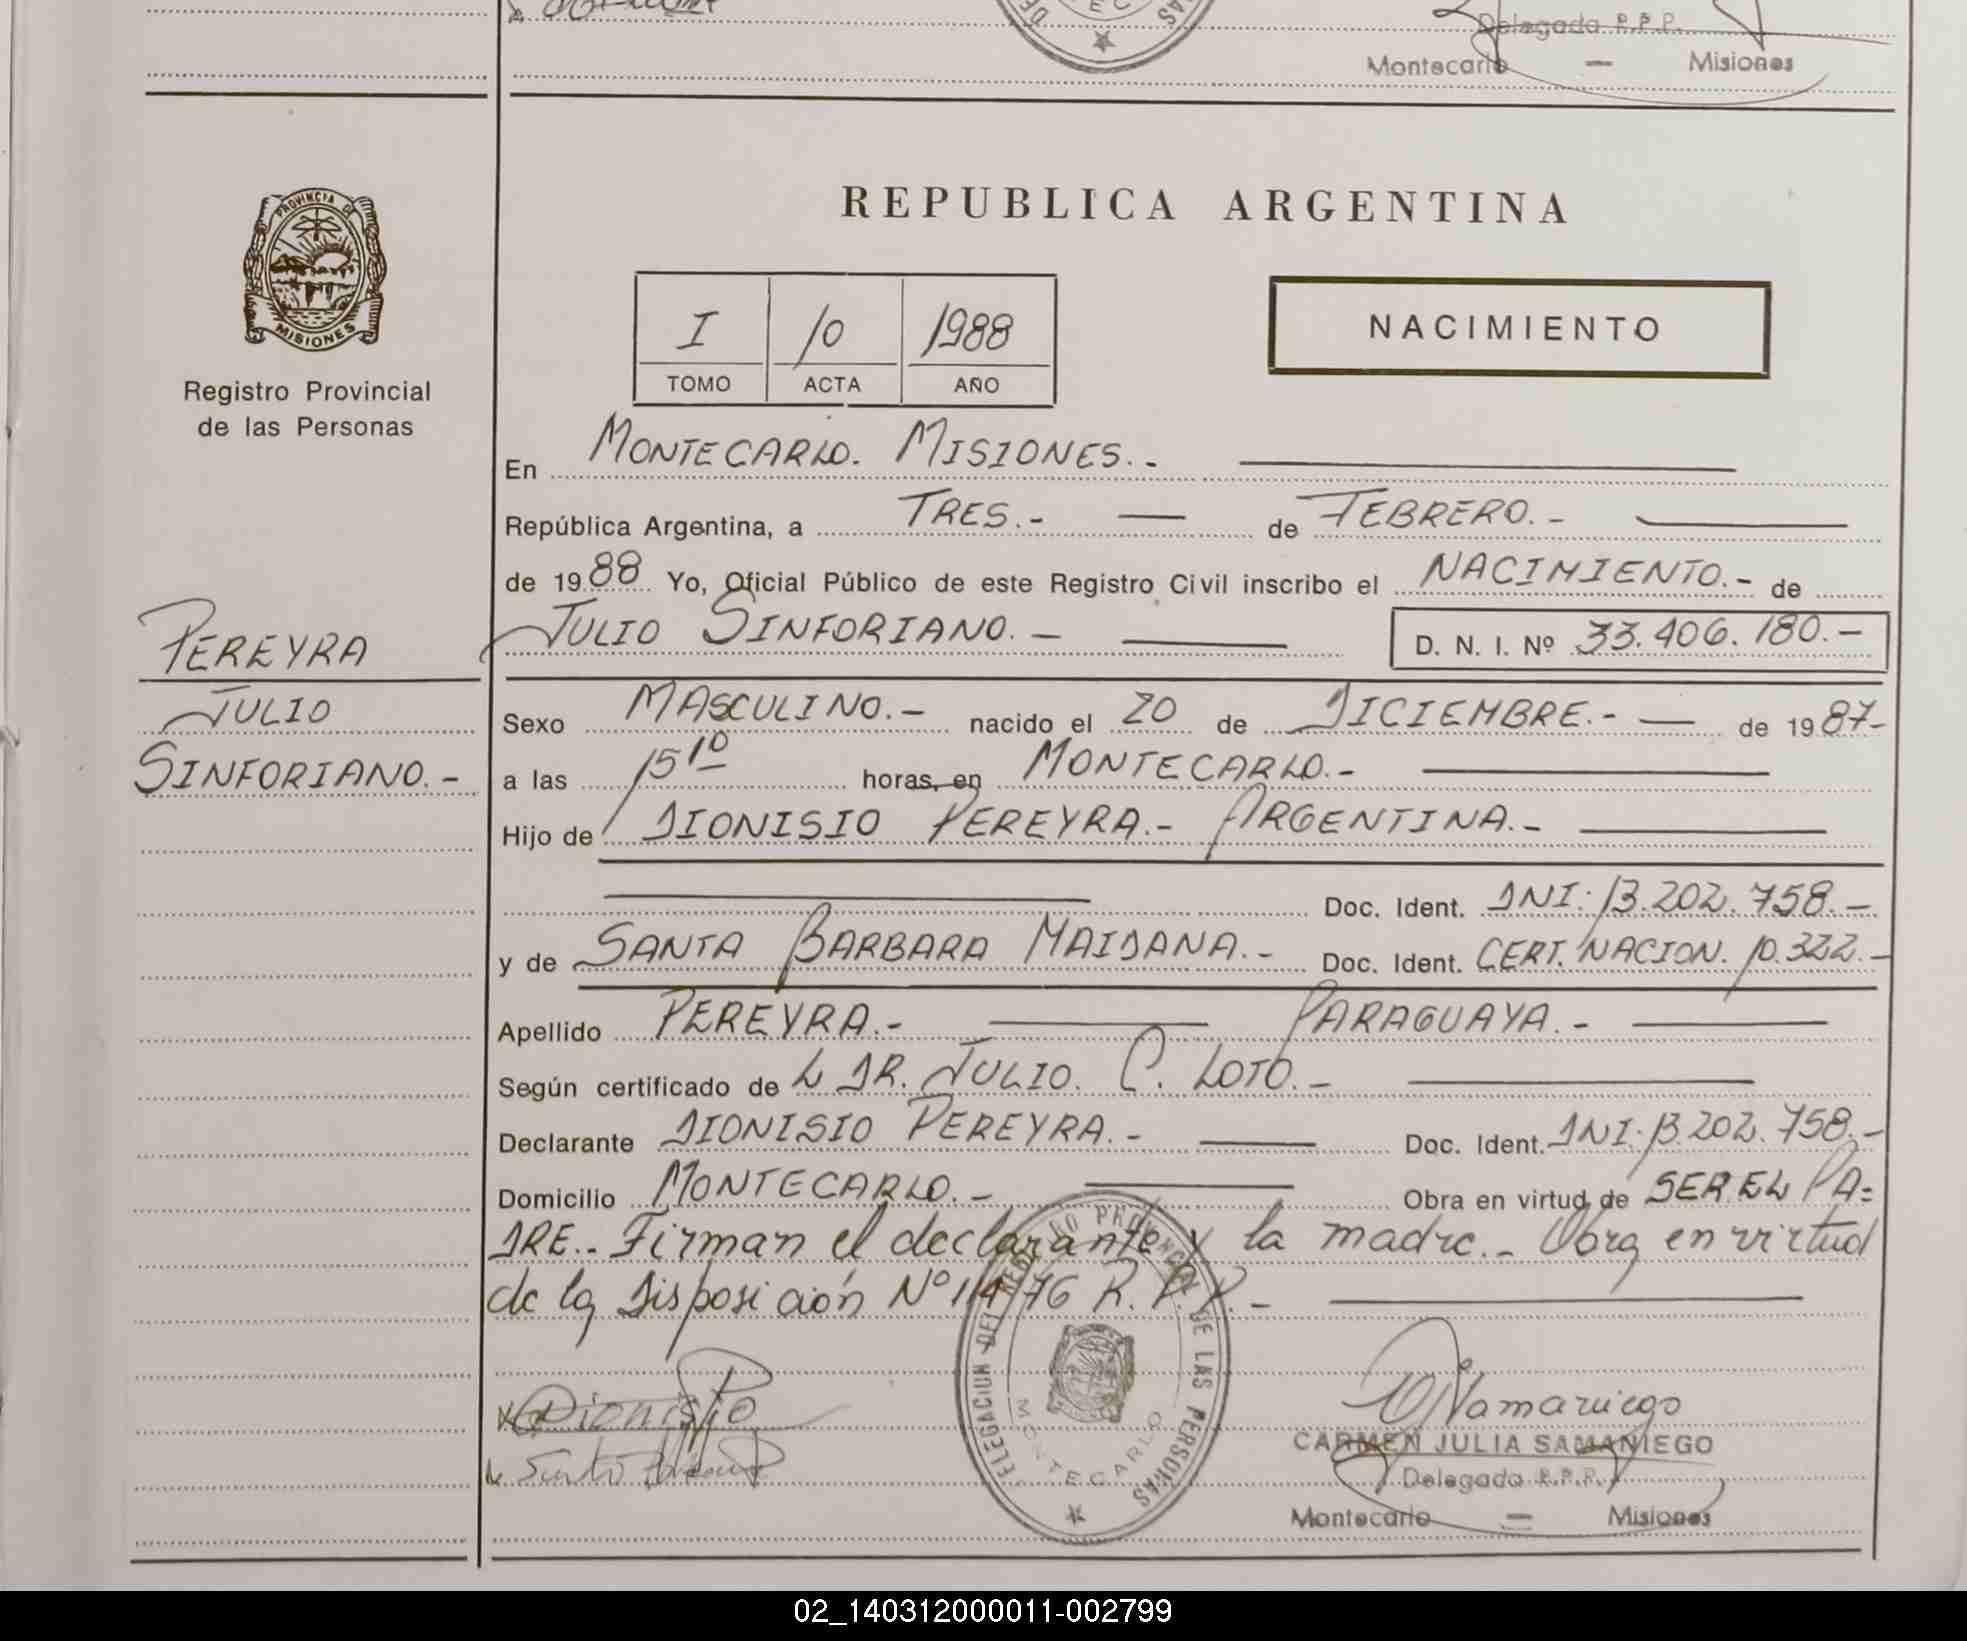 Delegada R.P.P.
Montecarlo — Misiones
PROVINCIA DE
MISIONES
Registro Provincial
de las Personas
REPUBLICA ARGENTINA
I 10 1988
TOMO ACTA AÑO
NACIMIENTO
En MONTECARLO. MISIONES.-
República Argentina, a TRES.- — de FEBRERO.-
de 1988 Yo, Oficial Público de este Registro Civil inscribo el NACIMIENTO.- de
JULIO SINFORIANO.- D. N. I. Nº 33.406.180.-
PEREYRA
JULIO
SINFORIANO.-
Sexo MASCULINO.- nacido el 20 de DICIEMBRE.- — de 1987-
a las 15 10 horas, en MONTECARLO.-
Hijo de DIONISIO PEREYRA.- ARGENTINA.-
Doc. Ident. DNI: 13.202.758.-
y de SANTA BARBARA MAIDANA.- Doc. Ident. CERT. NACION. 10.322.-
Apellido PEREYRA.- PARAGUAYA.-
Según certificado de L DR. JULIO. C. LOTO.-
Declarante DIONISIO PEREYRA.- Doc. Ident. DNI: 13.202.758.-
Domicilio MONTECARLO.- Obra en virtud de SER EL PA=
DRE.- Firman el declarante y la madre.- Obra en virtud
de la Disposición Nº 14/76 R. P. P.-
DELEGACION DEL REGISTRO PROVINCIAL DE LAS PERSONAS
MONTECARLO
Dionisio
Samaniego
CARMEN JULIA SAMANIEGO
Delegada R.P.P.
Montecarlo — Misiones
02_140312000011-002799